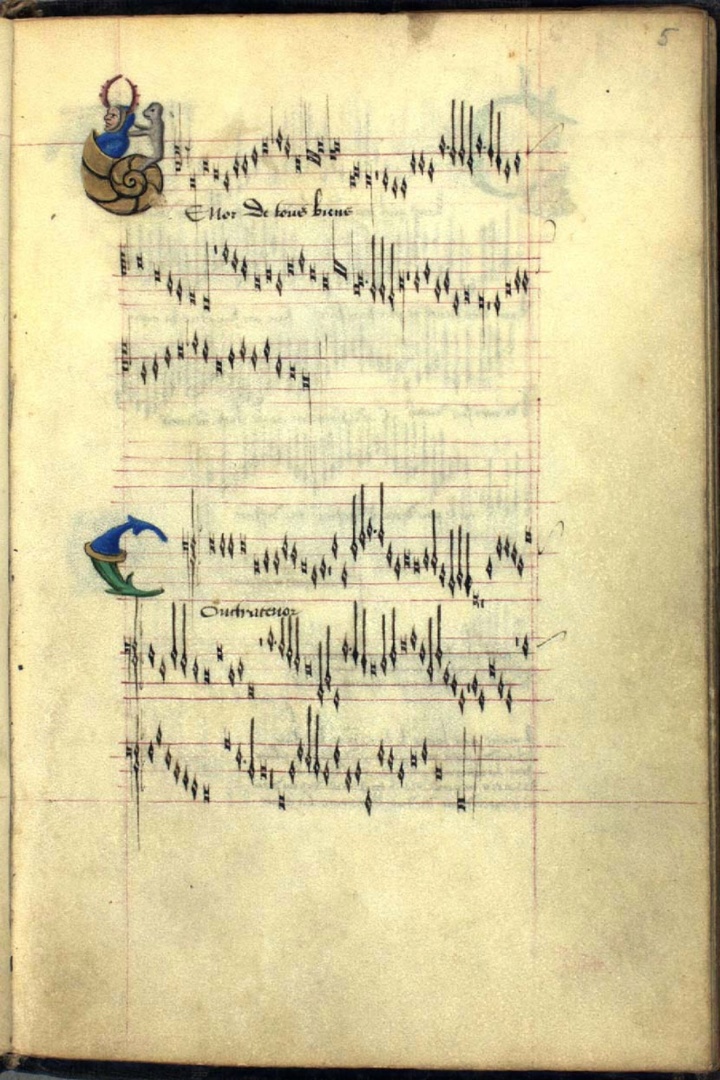 5
Enor De tous biens
Ontratenor